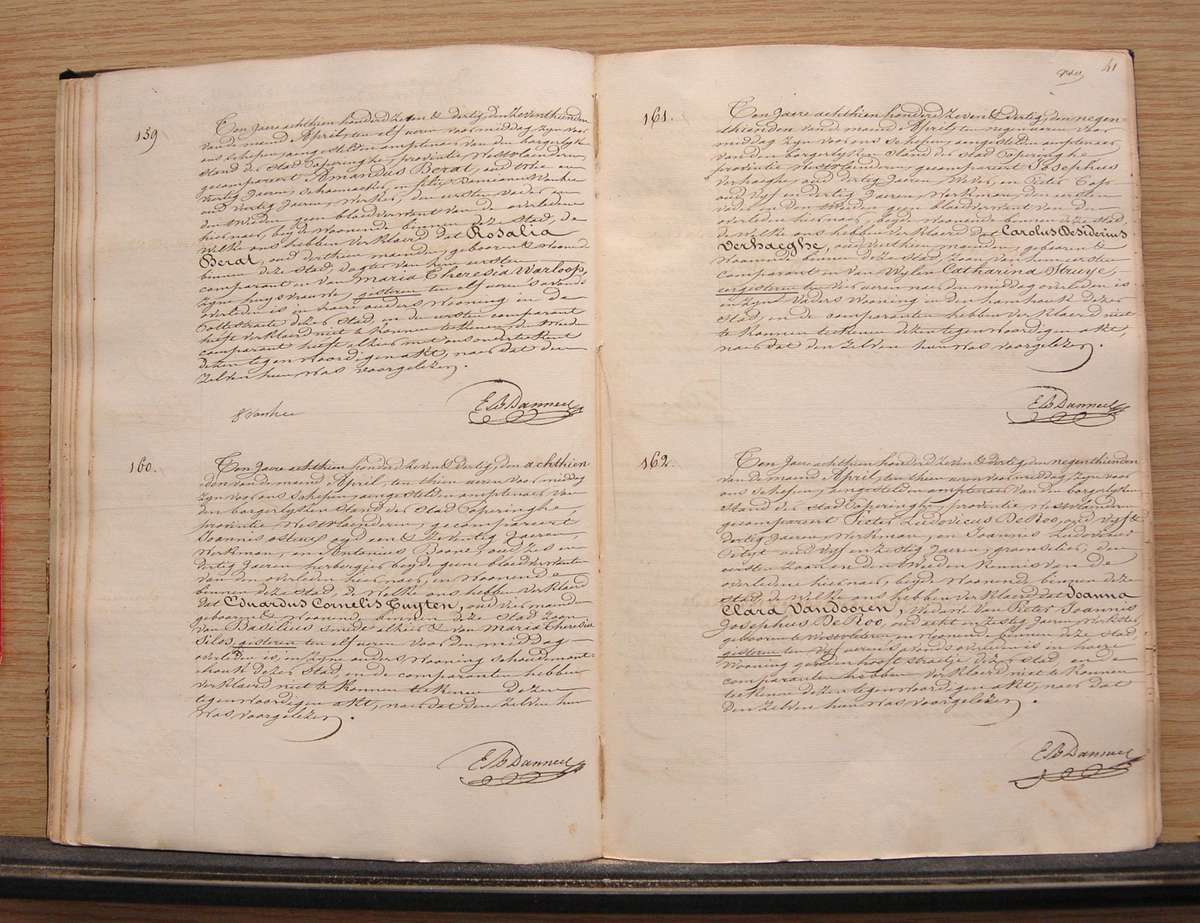 159
Ten Jaere achthien honderd Zeven & dertig, den Zeventhienden
van de maend April, ten elf ueren voor middag Zyn voor
ons Schepen, aengestelden amptenaer van den borgerlyken
stand der Stad Poperinghe, provintie Westvlaenderen
gecompareert Amandus Berat, oud
veertig Jaeren, Schoenmaeker, en felix Vanhee
oud veertig Jaeren, Werker, den eersten vader en
den tweeden geen bloedverwant van de overledene
hiernaer, beyde woonende binnen deze Stad, de
welke ons hebben verklaerd dat Rosalia
Berat, oud derthien maenden, geboren & woonende
binnen deze Stad, dogter van hun eersten
comparant en van Maria Theresia Warloop,
Zyne huysvrouwe, gisteren ten elf ueren savonds
overleden is in haer ouders Wooning in de
straete dezer Stad en de eersten comparant
heeft verklaerd niet te konnen teekenen de tweede
comparant heeft alhier met ons onderteekent
dezen tegenwoordigen akt, naer dat den
Zelven hun was voorgelezen.
f Vanhee
E B Danneel
160.
Ten Jaere achthien honderd Zeven & dertig, den achthien
den van de maend April, ten thien ueren voor middag
Zyn voor ons Schepen, aengestelden amptenaer van
den borgerlyken Stand der Stad Poperinghe,
provintie Westvlaenderen, gecompareert
Joannis oud een & Zeventig Jaeren,
Werkman, en Antonius Boone, oud Zes en
dertig Jaeren herbergier beyde geene bloedverwanten
van den overleden hiernaer, en Woonende
binnen deze Stad, de Welke ons hebben verklaerd
dat Eduardus Cornelis Tuyten, oud vier maenden
geboren & Woonende binnen deze Stad Zoon
van Basilius smid alhier & van Maria Theresia
Silos, gisteren ten elf ueren voor den middag
overleden is, in Zyne ouders Wooning Schoudemont
houk dezer Stad, en de comparanten hebben
verklaerd niet te konnen teekenen dezen
tegenwoordigen akt, naer dat den Zelven hun
was voorgelezen.
E B Danneel
41
161.
Ten Jaere achthien honderd Zeven & dertig, den negen-
thienden van de maend April ten negen ueren voor
middag Zyn voor ons Schepen, aengestelden amptenaer
van den borgerlyken Stand der Stad Poperinghe
provintie Westvlaenderen, gecompareert Josephus
Verhaeghe, oud dertig Jaeren, Werker, en Pieter
oud vyf en dertig Jaeren, Werkman, den eersten
vader en den tweeden geen bloedverwant van den
overleden hiernaer, beyde woonende binnen deze Stad
de Welke ons hebben Verklaerd dat Carolus Desiderius
Verhaeghe, oud veerthien maenden, geboren &
Woonende binnen deze Stad Zoon van hun eersten
comparant en van Wylen Catharina Struye,
eergisteren ten vier ueren naer den middag overleden is
in Zyne Vaders Wooning in den hamhouk dezer
Stad, en de comparanten hebben verklaerd niet
te konnen teekenen dezen tegenwoordigen akt,
naer dat den Zelven hun was voorgelezen.
E B Danneel
162.
Ten Jaere achthien honderd Zeven & dertig, den negenthienden
van de maend April, ten thien ueren voor middag, Zyn voor
ons Schepen, aengestelden amptenaer van den borgerlyken
Stand der Stad Poperinghe, provintie Westvlaenderen
gecompareert Pieter Ludovicus De Roo, oud vyf &
dertig Jaeren, Werkman, en Joannis Ludovicus
oud vyf en Zestig Jaeren, den
eersten Zoon en den tweeden kennis van de
overledene hiernaer, beyde Woonende binnen deze
Stad, de Welke ons hebben verklaerd dat Joanna
Clara Vandooren, Weduwe van Pieter Joannis
Josephus De Roo, oud acht en Zestig Jaeren, Werkster,
geboren te Westvleteren, en Woonende binnen deze Stad
gisteren ten vyf ueren Savonds overleden is in haere
Wooning straetje dezer Stad en de
comparanten hebben verklaerd niet te konnen
teekenen dezen tegenwoordigen akt, naer dat
den Zelven hun was voorgelezen.
E B Danneel